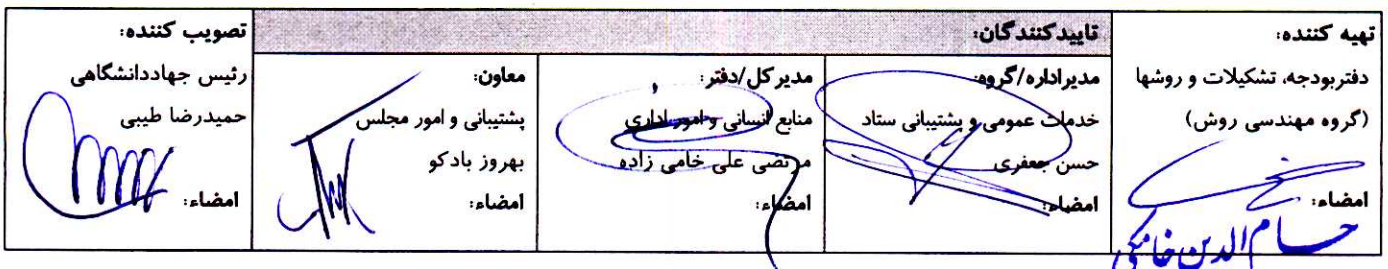 تهیه کننده:
دفتربودجه، تشکیلات و روشها
(گروه مهندسی روش)
امضاء:
حسام الدین خامکی
تاییدکنندگان:
مدیراداره/گروه:
خدمات عمومی و پشتیبانی ستاد
حسن جعفری
امضاء:
مدیرکل/دفتر:
منابع انسانی و امور اداری
مرتضی علی خامی زاده
امضاء:
معاون:
پشتیبانی و امور مجلس
بهروز بادکو
امضاء:
تصویب کننده:
رئیس جهاددانشگاهی
حمیدرضا طیبی
امضاء: